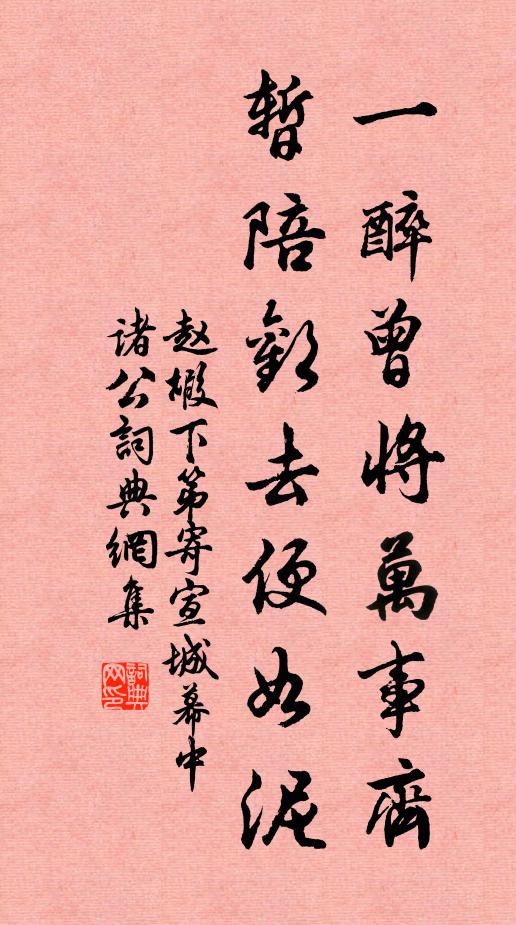 一醉曾將萬事齊
暫陪歡去便如泥
赵嘏下第寄宣城幕中
诸公詞典網集
詞典网印